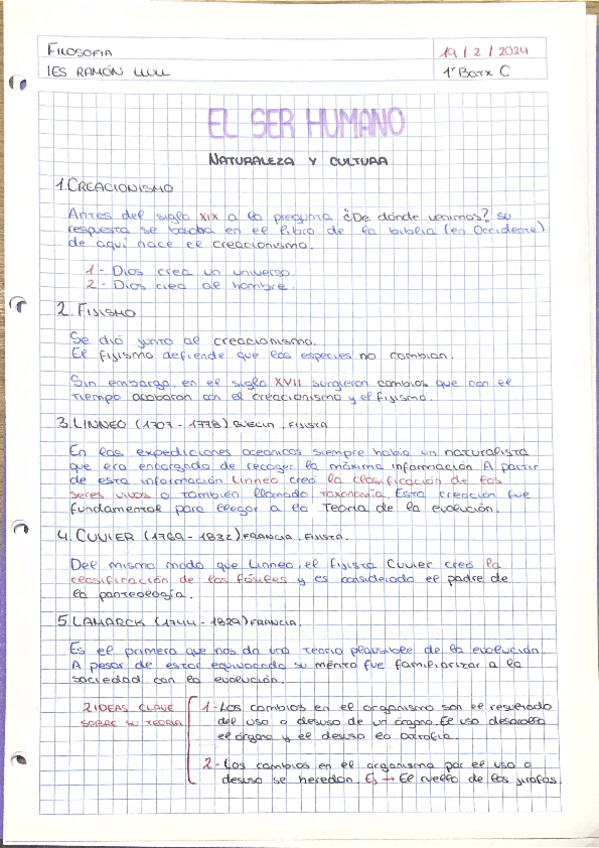 FILOSOFIA
19 / 2 / 2024
IES RAMÓN LLULL
1º Batx C
EL SER HUMANO
NATURALEZA Y CULTURA
1. CREACIONISMO
Antes del siglo XIX a la pregunta ¿De dónde venimos? su
respuesta se basaba en el libro de la biblia (en Occidente)
de aquí nace el creacionismo.
1 - Dios crea un universo.
2 - Dios crea al hombre.
2. FIJISMO
Se dió junto al creacionismo.
El fijismo defiende que las especies no cambian.
Sin embargo, en el siglo XVII surgieron cambios que con el
tiempo acabaron con el creacionismo y el fijismo.
3. LINNEO (1707 - 1778) SUECIA, FIJISTA
En las expediciones oceanicas siempre había un naturalista
que era encargado de recoger la máxima información. A partir
de esta información Linneo creó la clasificación de los
seres vivos o también llamado taxonomía. Esta creación fue
fundamental para llegar a la Teoría de la evolución.
4. CUVIER (1769 - 1832) FRANCIA, FIJISTA.
Del mismo modo que Linneo, el fijista Cuvier creó la
clasificación de los fósiles y es considerado el padre de
la
5. LAMARCK (1744 - 1829) FRANCIA.
Es el primero que nos da una teoría plausible de la evolución.
A pesar de estar equivocado su mérito fue familiarizar a la
sociedad con la evolución.
2 IDEAS CLAVE
SOBRE SU TEORIA
1 - Los cambios en el organismo son el resultado
del uso o desuso de un órgano. El uso desarrolla
el órgano y el desuso lo atrofia.
2 - Los cambios en el organismo por el uso o
desuso se heredan. Ej → El cuello de las jirafas.